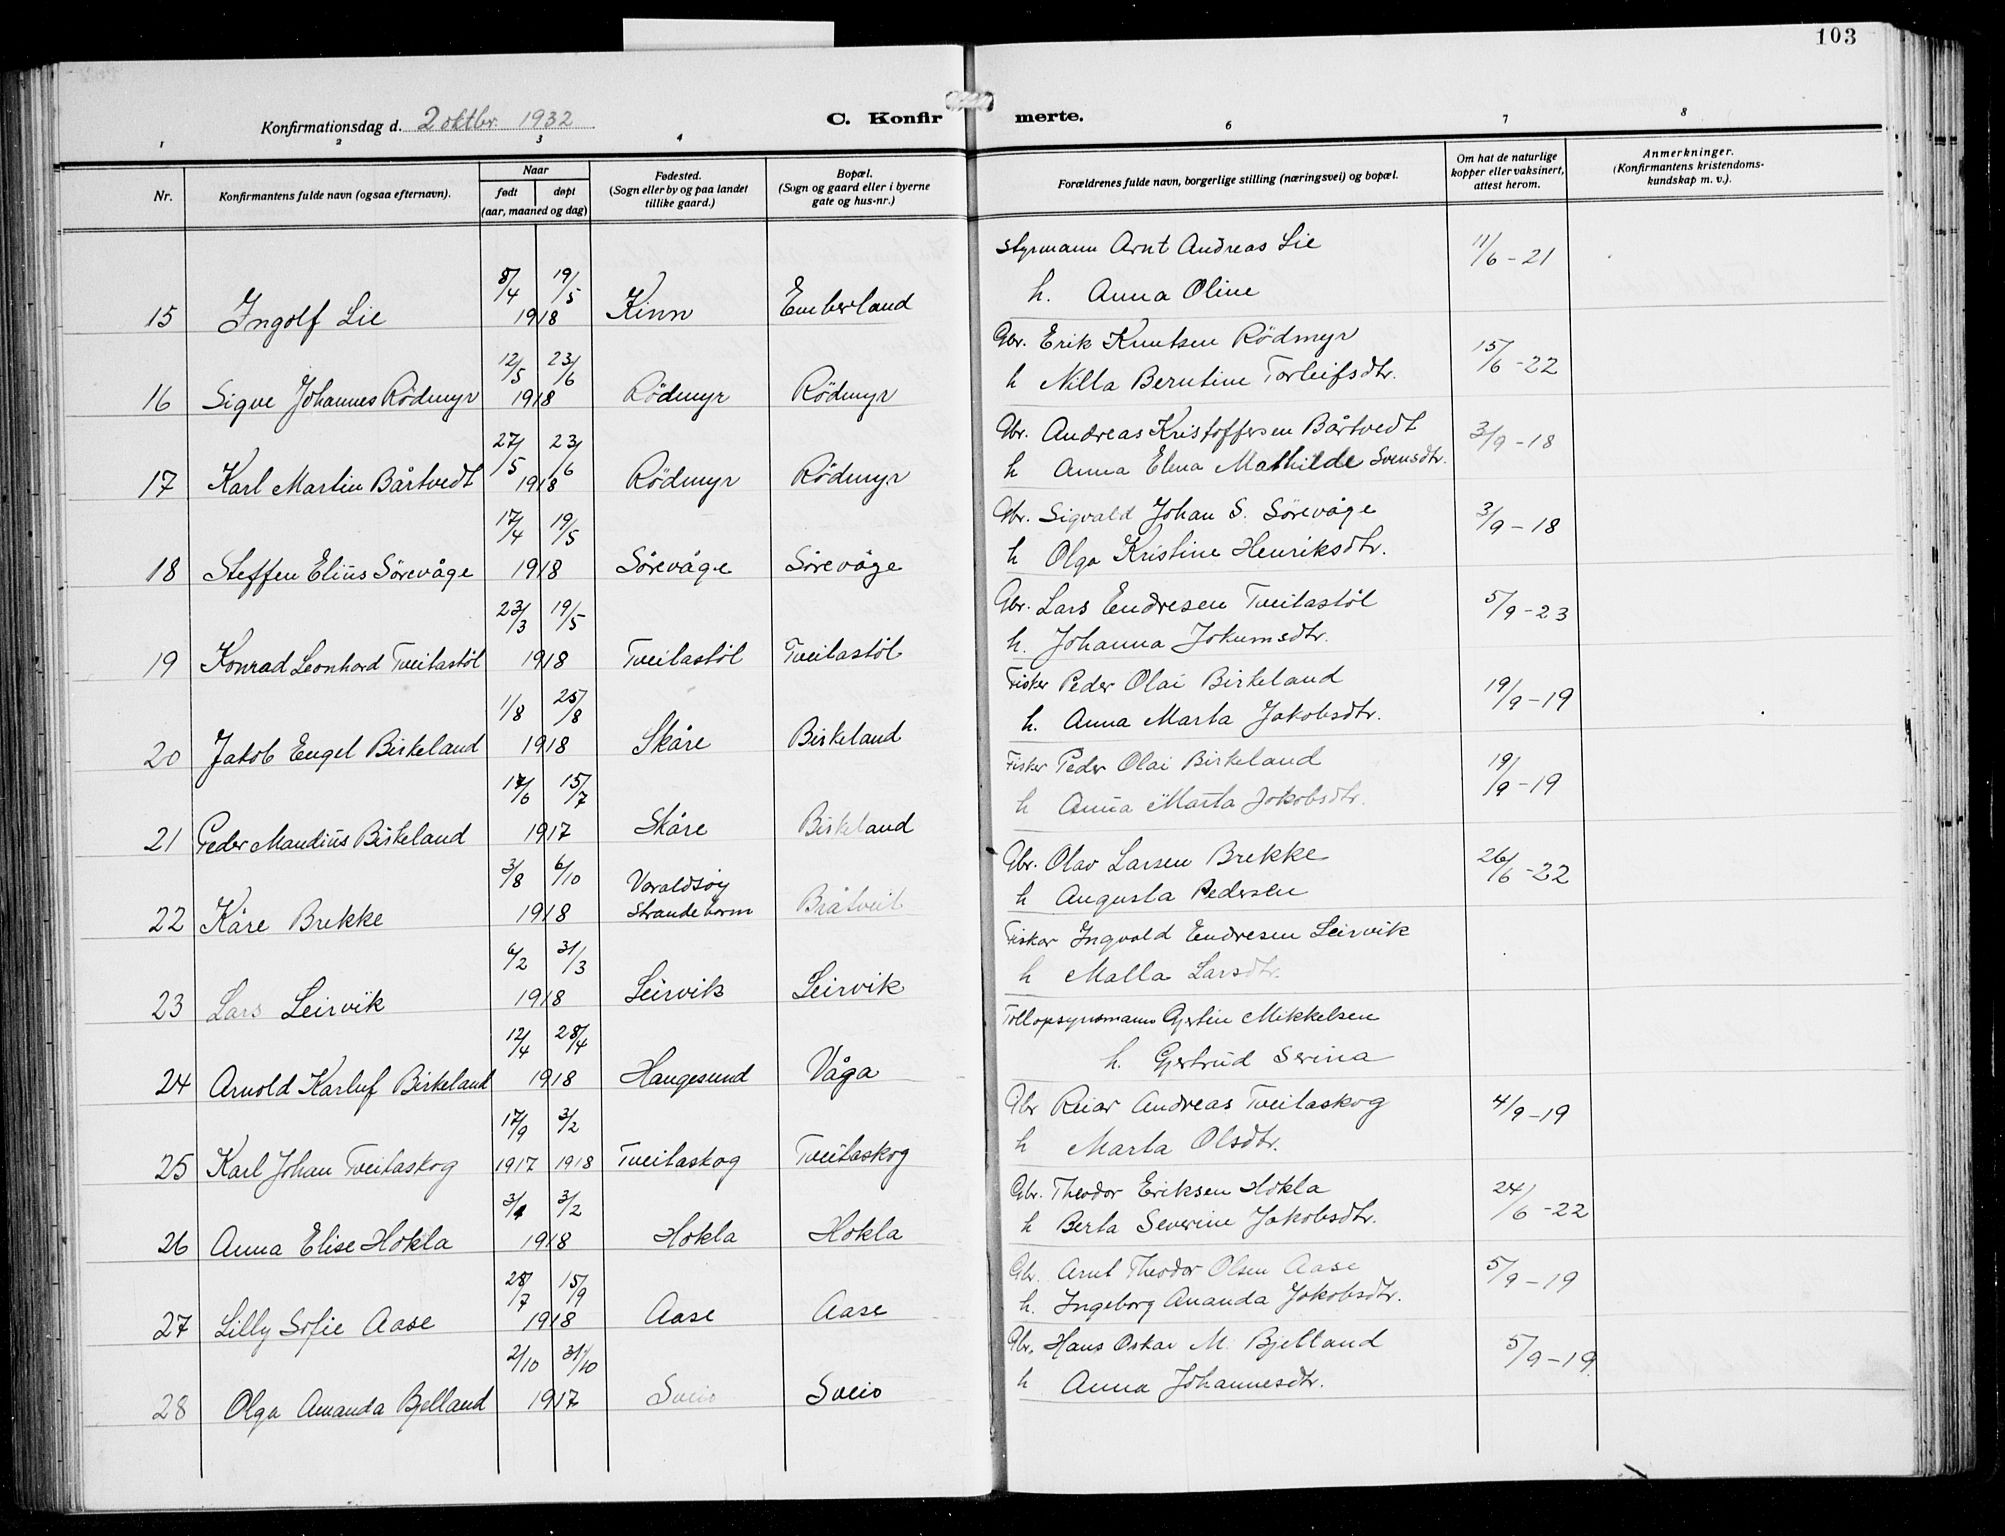 103
Konfirmationsdag d. 2 oktbr. 1932
C. Konfirmerte.
1 2 3 4 6 7 8
Nr.
Konfirmantens fulde navn (ogsaa efternavn).
Naar
født døpt
(aar, maaned og dag)
Fødested.
(Sogn eller by og paa landet
tillike gaard.)
Bopæl.
(Sogn og gaard eller i byerne
gate og hus-nr.)
Forældrenes fulde navn, borgerlige stilling (næringsvei) og bopæl.
Om hat de naturlige
kopper eller vaksinert,
attest herom.
Anmerkninger.
(Konfirmantens kristendoms-
kundskap m. v.).
8/4 19/5 Styrmann Arnt Andreas Lie 11/6-21
15 Ingolf Lie 1918 Kinn Emberland h. Anna Oline
12/5 23/6 Gbr. Erik Knutsen Rödmyr 15/6-22
16 Sigve Johannes Rödmyr 1918 Rödmyr Rödmyr h Nilla Berntine Torleifsdtr.
27/5 23/6 Gbr. Andreas Kristoffersen Bårtvedt 3/9-18
17 Karl Martin Bårtvedt 1918 Rödmyr Rödmyr h Anna Elena Mathilde Svensdtr.
17/4 19/5 Gbr. Sigvald Johan S. Sörevåge 3/9-18
18 Steffen Elius Sörevåge 1918 Sörevåge Sörevåge h Olga Kristine Henriksdtr.
23/3 19/5 Gbr. Lars Endresen Tveitastöl 5/9-23
19 Konrad Leonhard Tveitastöl 1918 Tveitastöl Tveitastöl h. Johanna Jokumsdtr.
1/8 25/8 Fisker Peder Olai Birkeland 19/9-19
20 Jakob Engel Birkeland 1918 Skåre Birkeland h. Anna Marta Jakobsdtr.
17/6 15/7 Fisker Peder Olai Birkeland 19/9-19
21 Peder Mandius Birkeland 1917 Skåre Birkeland h Anna Marta Jakobsdtr.
3/8 6/10 Varaldsöy Gbr. Olav Larsen Brekke 26/6-22
22 Kåre Brekke 1918 Strandebarm Bråtveit h Augusta Pedersen
6/2 31/3 Fisker Ingvald Endresen Leirvik
23 Lars Leirvik 1918 Leirvik Leirvik h Malla Larsdtr.
12/4 28/4 Tollopsynsmann Gjertin Mikkelsen
24 Arnold Karluf Birkeland 1918 Haugesund Våga h. Gjertrud Serina
17/9 3/2 Gbr Reiar Andreas Tveitaskog 4/9-19
25 Karl Johan Tveitaskog 1917 1918 Tveitaskog Tveitaskog h Marta Olsdtr.
3/1 3/2 Gbr. Theodor Eriksen Hokla 24/6-22
26 Anna Elise Hokla 1918 Hokla Hokla h Berta Severine Jakobsdtr.
28/7 15/9 Gbr. Arnt Theodor Olsen Aase 5/9-19
27 Lilly Sofie Aase 1918 Aase Aase h. Ingeborg Ananda Jakobsdtr.
2/10 31/10 Gbr. Hans Oskar M. Bjelland 5/9-19
28 Olga Amanda Bjelland 1917 Sveio Sveio h Anna Johannesdtr.